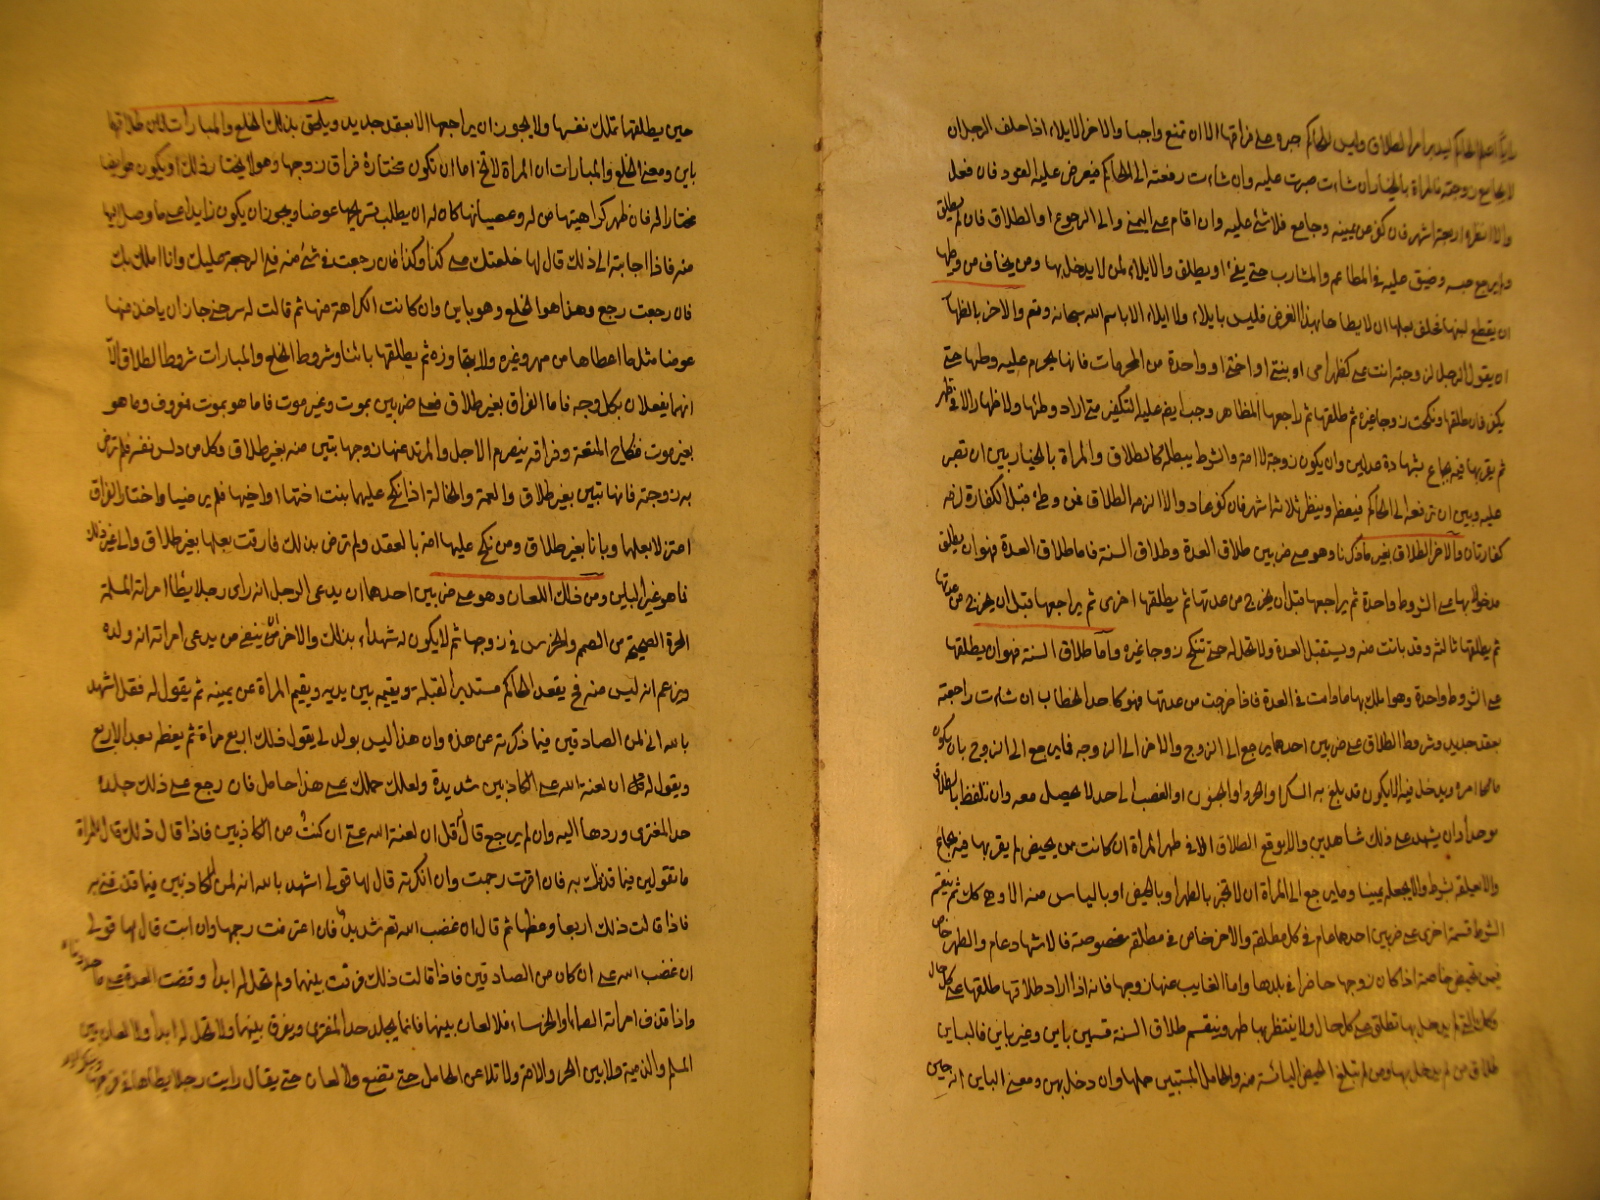 الحاكم جبره على فراقها الا ان تمنع واجبا والاخر الايلاء اذا حلف الرجل ان
لا يجامع زوجته فالمراة بالخيار ان شاءت صبرت عليه وان شاءت رفعته الى الحاكم فيعرض عليه العود فان فعل
والا انظره اربعة اشهر فان كفر عن يمينه وجامع فلا شئ عليه وان اقام على اليمين والى الرجوع او الطلاق فان لم يطلق
ولم يرجع حبسه وضيق عليه في المطاعم والمشارب حتى يفئ او يطلق والايلاء لمن لا يدخل بها ومن يخاف من وطيها
ان يقطع لبنها فحلف بعلها ان لا يطاها بهذا الغرض فليس بايلاء ولا ايلاء الا باسم الله سبحانه وتعم والاخر بالظهار
ان يقول الرجل لزوجته انت على كظهر امى او بنتى او اختى او واحدة من المحرمات فانها يحرم عليه وطيها حتى
يكفر فان طلقها ونكحت زوجا غيره ثم طلقها ثم راجعها المظاهر وجب ايضم عليه التكفير متى اراد وطئها ولا ظهار الا في طهر
لم يقربها فيه بجماع بشهادة عدلين وان يكون زوجة لا امة والشرط يبطله كالطلاق والمراة بالخيار بين ان تصبر
عليه وبين ان ترفعه الى الحاكم فيعظه وينظره ثلاثة اشهر فان كفر عاد والا الزمه الطلاق فمن وطئ قبل الكفارة لزمه
كفارتان والاخر الطلاق بغير ما ذكرنا وهو على ضربين طلاق العدة وطلاق السنة فاما طلاق العدة فهو ان يطلق
مدخولا بها على الشروط واحدة ثم يراجعها قبل ان يخرج من عدتها ثم يطلقها اخرى ثم يراجعها قبل ان يخرج من عدتها
ثم يطلقها ثالثة وقد بانت منه ويستقبل العدة ولا تحل له حتى تنكح زوجا غيره واما طلاق السنة فهو ان يطلقها
على الشروط واحدة وهو املك بها ما دامت في العدة فاذا خرجت من عدتها فهو كاحد الخطاب ان شاءت راجعته
بعقد جديد وشروط الطلاق على ضربين احدهما يرجع الى الزوج والاخر الى الزوجه فما يرجع الى الزوج بان يكون
مالكا امره ويدخل فيه ان لا يكون قد بلغ به السكر او الحرد او الجنون او الغضب الى حد لا يحصل معه وان تلفظ بالطلاق
موحدا وان يشهد على ذلك شاهدين والا يوقع الطلاق الا في طهر المراة ان كانت من يحيض لم يقربها فيه بجماع
والا يعلقه بشرط والا يجعله يمينا وما يرجع الى المراة ان لا تخبر بالطهر او بالحيض او بالياس منه الا وهى كك ثم ينقسم
الشرط قسمة اخرى على ضربين احدهما عام في كل مطلقه والاخر خاص في مطلقه مخصوصة فالاشهاد عام والطهر خاص
فيمن تحيض خاصة اذا كان زوجها حاضرا في بلدها واما الغايب عنها زوجها فانه اذا اراد طلاقها طلقها على كل حال
وكل التى لم يدخل بها تطلق على كل حال ولا ينتظر بها طهر وينقسم طلاق السنة قسمين باين وغير باين فالباين
طلاق من لم يدخل بها ومن لم تبلغ الحيض واليائسة منه والحامل المستبين حملها وان دخل بهن ومعنى الباين انه حين
حين يطلقها تملك نفسها ولا يجوز ان يراجعها الا بعقد جديد ويلحق بذلك الخلع والمبارات لان طلاقها
باين ومعنى الخلع والمبارات ان المراة لا تخ اما ان تكون مختارة فراق زوجها وهو لا يختار ذلك او يكون هو ايضا
مختارا له فان ظهر كراهيتها من له وعصيانها كان له ان يطلب بتسريحها عوضا ويجوز ان يكون زايدا على ما وصل اليها
منه فاذا اجابته الى ذلك قال لها خلعتك على كذا وكذا فان رجعت في شئ منه فلى الرجعة عليك وانا املك بك
فان رجعت رجع وهذا هو الخلع وهو باين وان كانت الكراهة منها ثم قالت له سرحنى جاز ان ياخذ منها
عوضا مثل ما اعطاها من مهر وغيره ولا يتجاوزه ثم يطلقها بائنا وشروط الخلع والمبارات شروط الطلاق الا
انهما يفعلان بكل وجه فاما الفراق بغير طلاق فعلى ضربين بموت وغير موت فاما هو بموت معروف وما هو
بغير موت فنكاح المتعة وفراقه ينصرم الاجل والمرتد عنها زوجها تبين منه بغير طلاق وكل من دلس نفسه فلم ترض
به زوجته فانها تبين بغير طلاق والعمة والخالة اذا نكح عليهما بنت اختها او اخيها فلم يرضيا واختارا الفراق
اعتزلا بعلها وبانا بغير طلاق ومن نكح عليها امة بالعقد ولم ترض بذلك فارقت بعلها بغير طلاق والى غير ذلك
فاهو غير البلين ومن ذلك اللعان وهو على ضربين احدهما ان يدعى الرجل انه راى رجلا يطا امراته المسلمة
الحرة الصحيحة من الصم والخرس في زوجها ثم لا يكون له شهداء بذلك والاخر ان ينفى من يدعى امراته انه ولده
ويزعم انه ليس منه فح يقعد الحاكم مستدبر القبلة ويقيمه بين يديه ويقيم المراة عن يمينه ثم يقول له فقل اشهد
بالله انى لمن الصادقين فيما ذكرته عن هذه وان هذا ليس بولد لى يقول ذلك اربع مراة ثم يعظه بعد الاربع
ويقول له قل ان لعنة الله على الكاذبين شديدة ولعلك حملك على هذا حامل فان رجع على ذلك جلده
حد المفترى وردها اليه وان لم يرجع قال له قل ان لعنة الله على ان كنت من الكاذبين فاذا قال ذلك قال للمراة
ما تقولين فيما قذفك به فان اقرت رجمت وان انكرته قال لها قولى اشهد بالله انه لمن الكاذبين فيما قذفنى به
فاذا قالت ذلك اربعا وعظها ثم قال ان غضب الله تعم شديد فان اعترفت رجمها وان ابت قال لها قولى
ان غضب الله على ان كان من الصادقين فاذا قالت ذلك فرقت بينهما ولم تحل له ابدا وقضت العدة على ما
واذا قذف امراته الصماء او الخرساء فلا لعان بينهما فانما يجلد حد المفترى ويفرق بينهما ولا تحل له ابدا ولا لعان بين
المسلم والذمية ولا بين الحر والامة ولا تلاعن الحامل حتى تضع ولا لعان حتى يقال رايت رجلا يطاها في فرجها